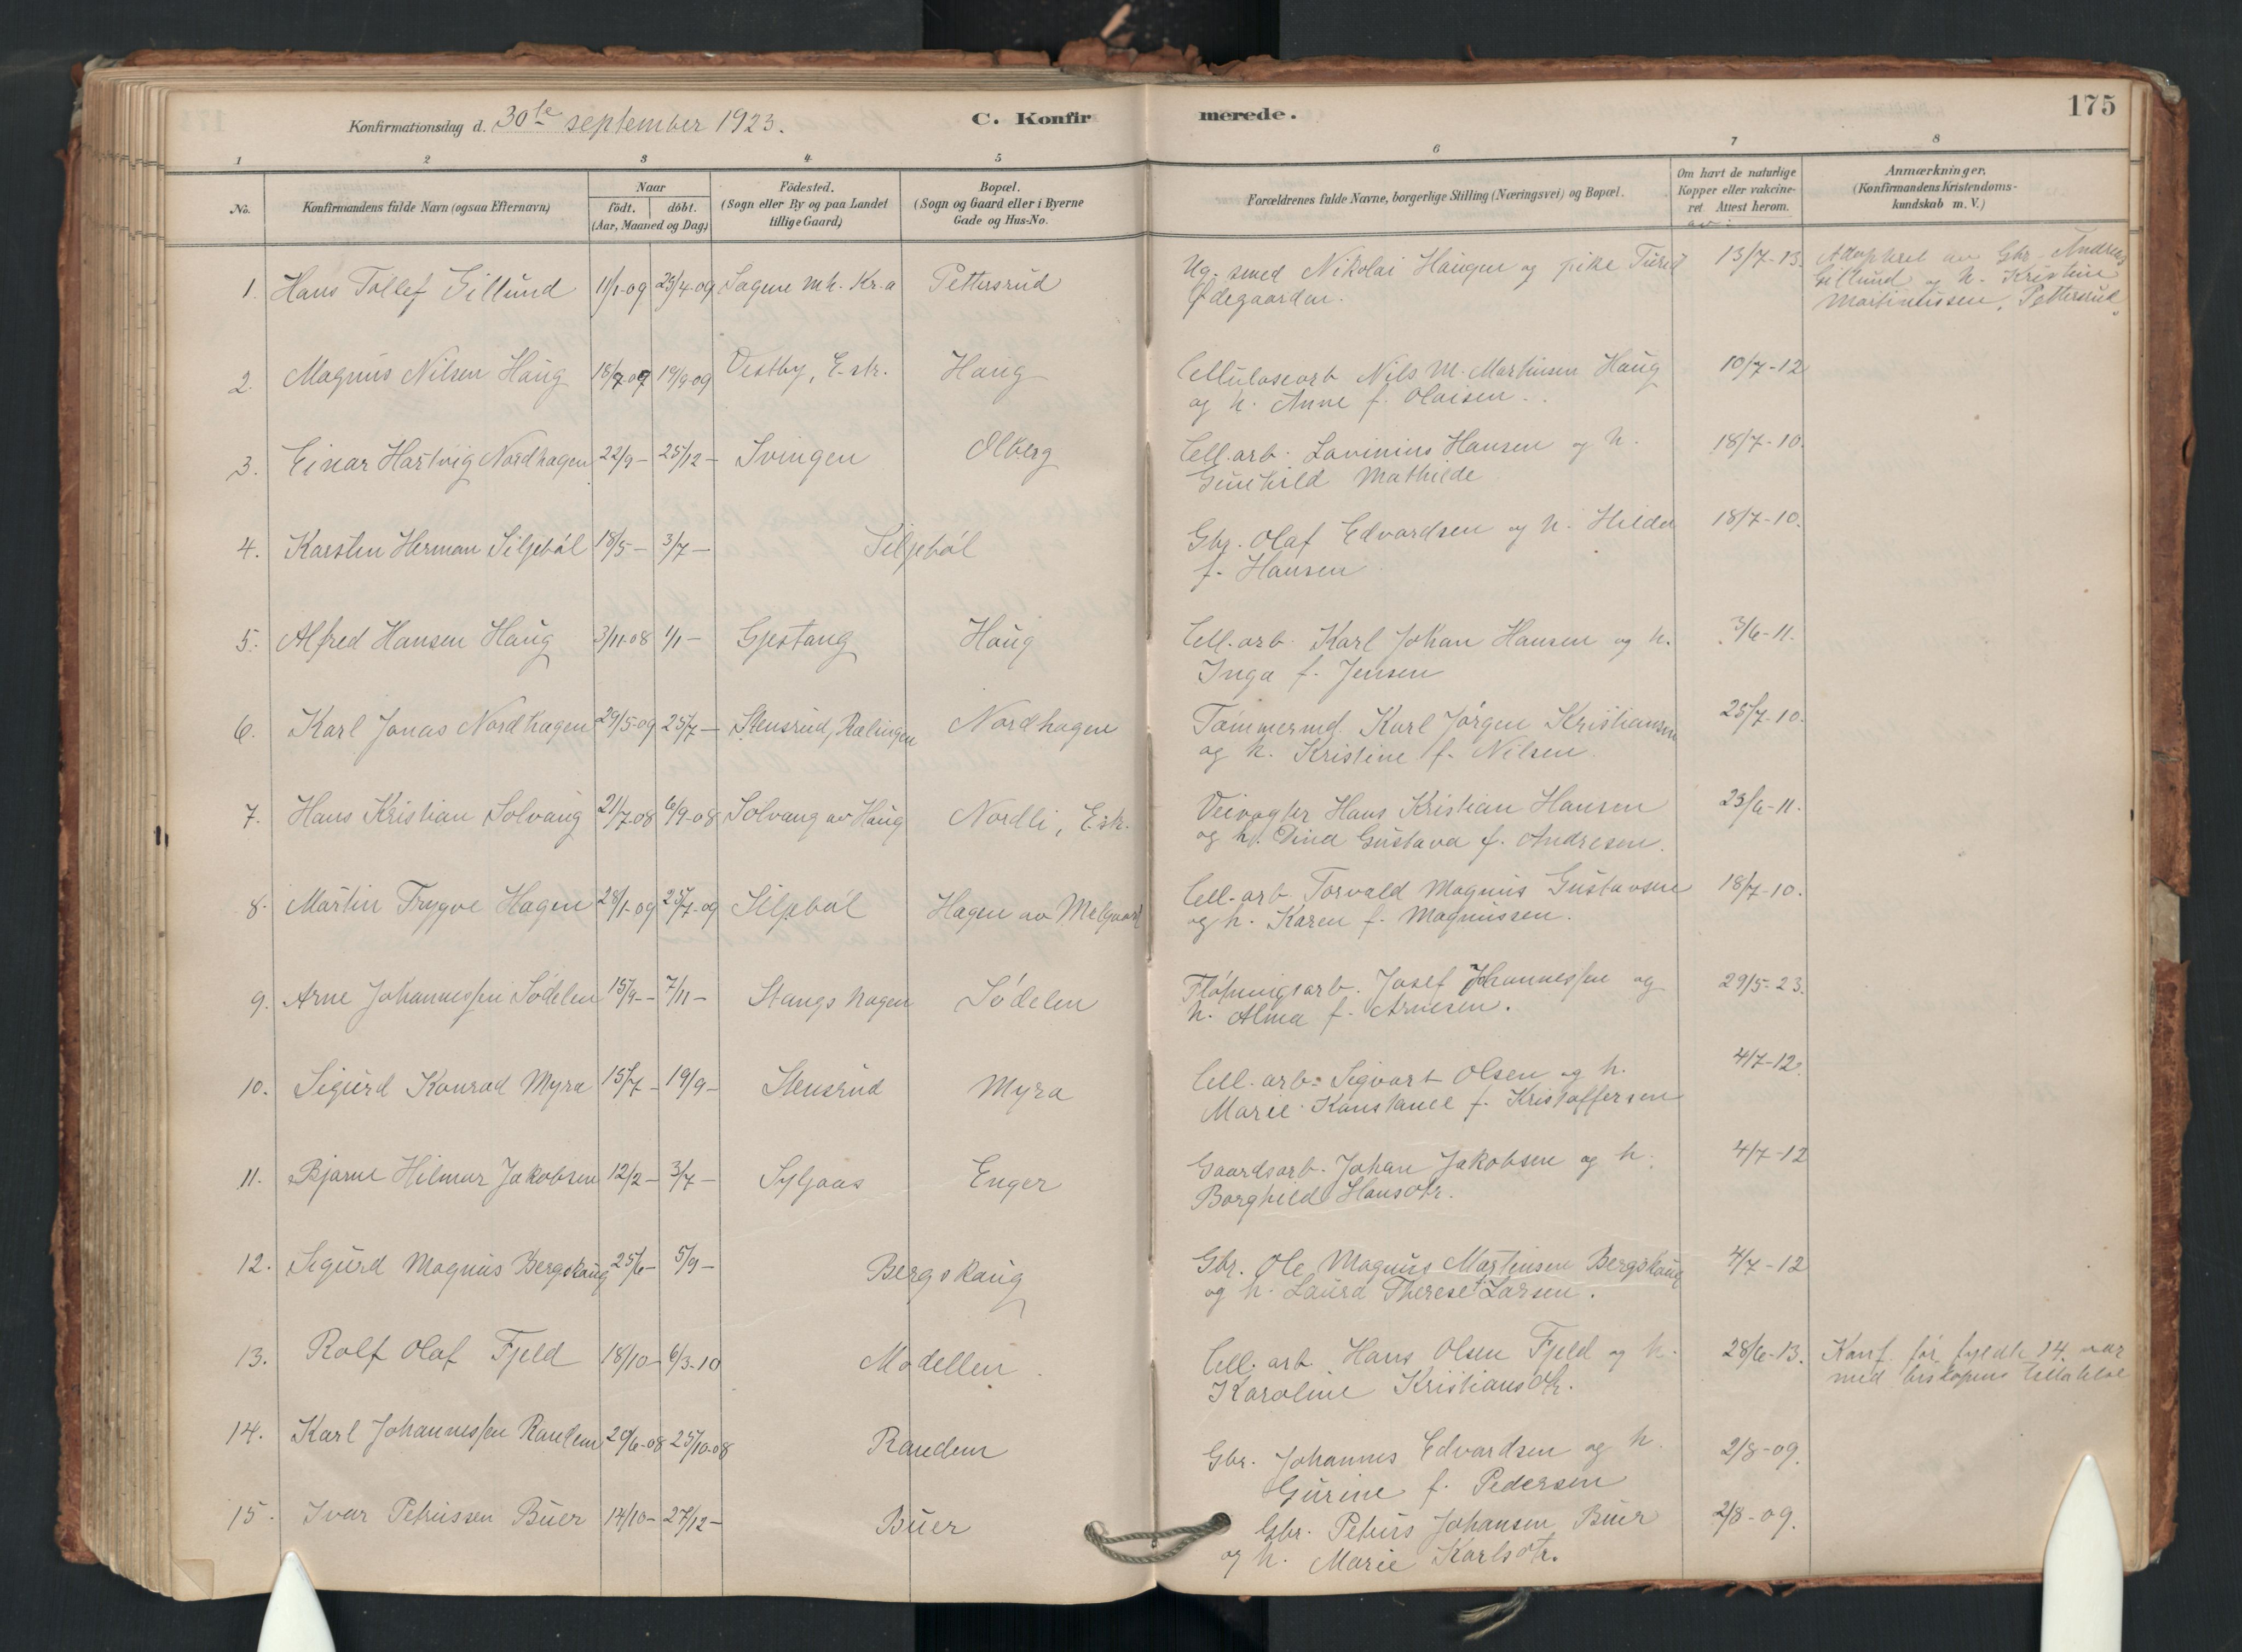 Konfirmationsdag d. 30te september 1923.
C. Konfirmerede.
175
1 2 3 4 5 6 7 8
No.
Konfirmandens fulde Navn (ogsaa Efternavn)
Naar
födt. döbt.
(Aar, Maaned og Dag)
Födested.
(Sogn eller By og paa Landet
tillige Gaard)
Bopæl.
(Sogn og Gaard eller i Byerne
Gade og Hus-No.
Forældrenes fulde Navne, borgerlige Stilling (Næringsvei) og Bopæl.
Om havt de naturlige
Kopper eller vakcine-
ret Attest herom.
Anmærkninger.
(Konfirmandens Kristendoms-
kundskab m. V.)
1. Hans Tollef Gillund 11/1-09 25/4-09 Sagene mh. Kr.a Pettersrud
Ug. smed Nikolai Haugen og pike Turid
Ødegaarden.
13/7-13.
Adopteret av Gbr. Andreas
Gillund og h. Kristine
Martinussen, Pettersrud.
2. Magnus Nilsen Haug 18/7-09 19/9-09 Vestby, E.str. Haug
Cellulosearb Nils M. Martinsen Haug
og h. Anne f. Olaisen.
10/7-12
3. Einar Hartvig Nordhagen 22/9- 25/12- Svingen Olberg
Cell.arb. Lavinius Hansen og h.
Gunhild Mathilde
18/7-10.
4. Karsten Herman Siljeböl 18/5- 3/7- Siljeböl
Gbr. Olaf Edvardsen og h. Hilda
f. Hansen
18/7-10.
5. Alfred Hansen Haug 3/11-08 1/1- Gjestang Haug
Cell.arb. Karl Johan Hansen og h.
Inga f. Jensen
3/6-11.
6. Karl Jonas Nordhagen 29/5-09 25/7- Stensrud, Rælingen Nordhagen
Tömmermd. Karl Jörgen Kristiansen
og h. Kristine f. Nilsen.
25/7-10.
7. Hans Kristian Solvang 21/7-08 6/9-08 Solvang av Haug Nordli, E.str.
Veivogter Hans Kristian Hansen
og h. Dina Gustava f. Andresen.
23/6-11.
8. Martin Trygve Hagen 28/1-09 25/7-09 Siljeböl Hagen av Melgaard
Cell-arb. Torvald Magnus Gustavsen
og h. Karen f. Magnussen.
18/7-10.
9. Arne Johannessen Södelen 15/9- 7/11- Stangshagen Södelen
Flötningsarb. Josef Johannessen og
h. Alma f. Arnesen.
29/5-23.
10. Sigurd Konrad Myra 15/7- 19/9- Stensrud Myra
Cell.arb. Sigvart Olsen og h.
Marie Konstance f. Kristoffersen
4/7-12.
11. Bjarne Hilmar Jakobsen 12/2- 3/7- Syljaas Enger
Gaardsarb. Johan Jakobsen og h.
Borghild Hansdtr.
4/7-12
12. Sigurd Magnus Bergskaug 25/6- 5/9- Bergskaug
Gbr. Ole Magnus Martinsen Bergskaug
og h. Laura Therese f. Larsen.
4/7-12
13. Rolf Olaf Fjeld 18/10- 6/3-10 Modellen.
Cell. arb. Hans Olsen Fjeld og h.
Karoline Kristiansdtr.
28/6-13.
Konf. för fyldte 14. aar
med biskopens tilladelse
14. Karl Johannessen Randem 29/6-08 25/10-08 Randem
Gbr. Johannes Edvardsen og h.
Gurine f. Pedersen
2/8-09.
15. Ivar Petrussen Buer 14/10- 27/12- Buer
Gbr. Petrus Johansen Buer
og h. Marie Karlsdtr.
2/8-09.